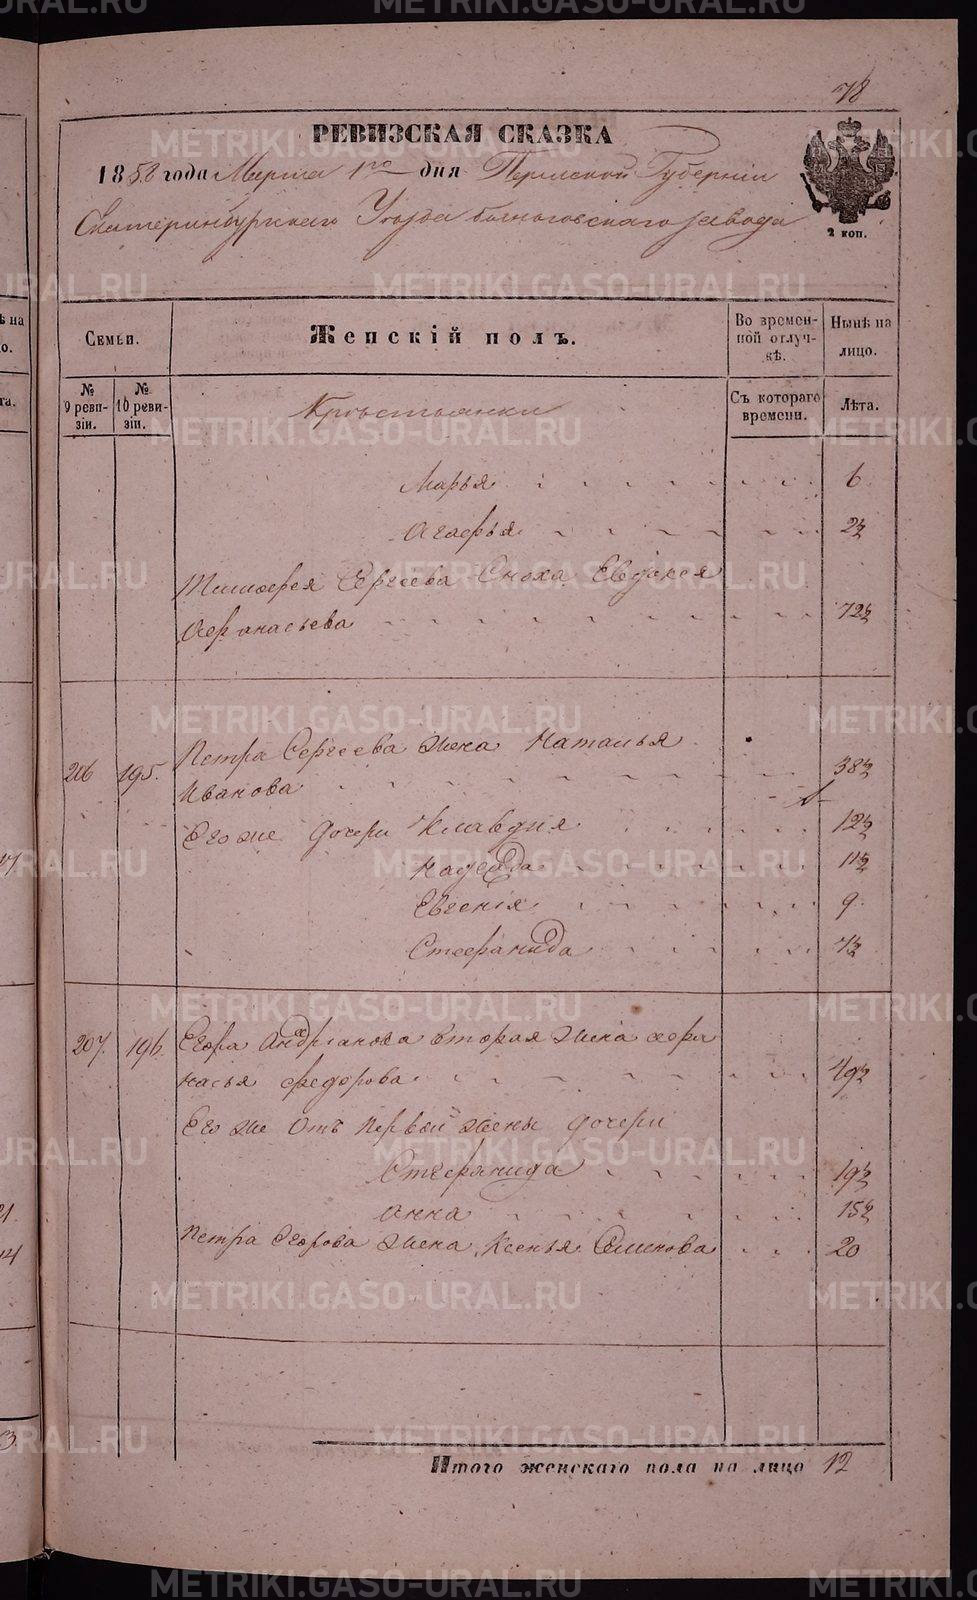 78
РЕВИЗСКАЯ СКАЗКА
1858 года Марта 1го дня Пермской Губерніи
Екатеринбургскаго Уезда завода
2 коп.
Семьи.
Женскій полъ.
Во временной отлучкѣ.
Нынѣ на лицо.
№ 9 ревизіи.
№ 10 ревизіи.
Съ котораго времени.
Лѣта.
Крестьянки
Марья 6
Агафья 2½
Тимофея Сергеева Сноха Евдокея
Афанасьева 72½
206 195. Петра Сергеева жена Наталья
Иванова 38½
Его же дочери Клавдия 12½
Надежда 11½
Евгенія 9
Стефанида ½
207. 196. Егора Андрianова вторая жена Афа
насья федорова 49½
Его же Отъ первой жены дочери
Стефанида 19½
Анна 15½
Петра Егорова жена Ксенья Семенова 20
Итого женскаго пола на лицо 12
METRIKI.GASO-URAL.RU